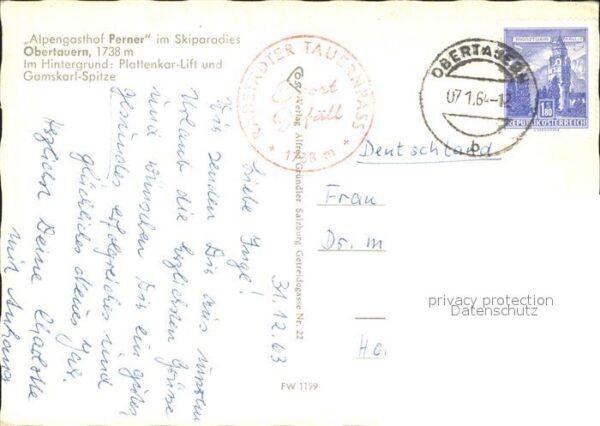 „Alpengasthof Perner" im Skiparadies
Obertauern, 1738 m
Im Hintergrund: Plattenkar-Lift und
Gamskarl-Spitze
RADSTÄDTER TAUERNPASS
* 1738 m *
OBERTAUERN
07.1.64-12
b
1.80
REPUBLIK ÖSTERREICH
31.12.63
Liebe Inge!
Wir senden Dir aus unserem
Urlaub die herzlichsten Grüsse
und wünschen Dir ein gutes
Gesundes erfolgreiches und
glückliches Neues Jahr.
Herzlichst Deine Charlotte
mit Anhang
Verlag Alfred Gründler Salzburg Getreidegasse Nr. 22
FW 1199
Deutschland
Frau
Dr. m
Ho
privacy protection
Datenschutz